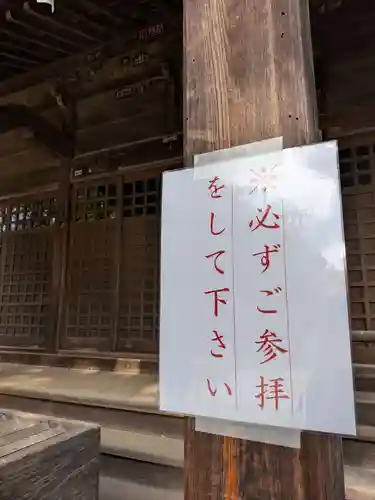 ※必ずご参拝
をして下さい